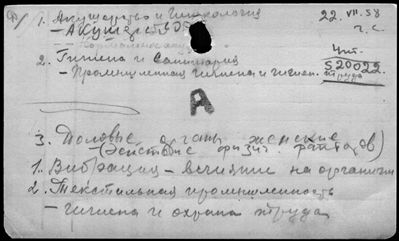 1. Акушерство и гинекология
22. VII. 58
– Акушерство
г. с.
2. Гигиена и санитария
Чит.
– Промышленная гигиена и гигиен. труда
S 20022
А
3. Половые органы женские
– (действие физич. факторов)
1. Вибрация – влияние на организм
2. Текстильная промышленность
– гигиена и охрана труда